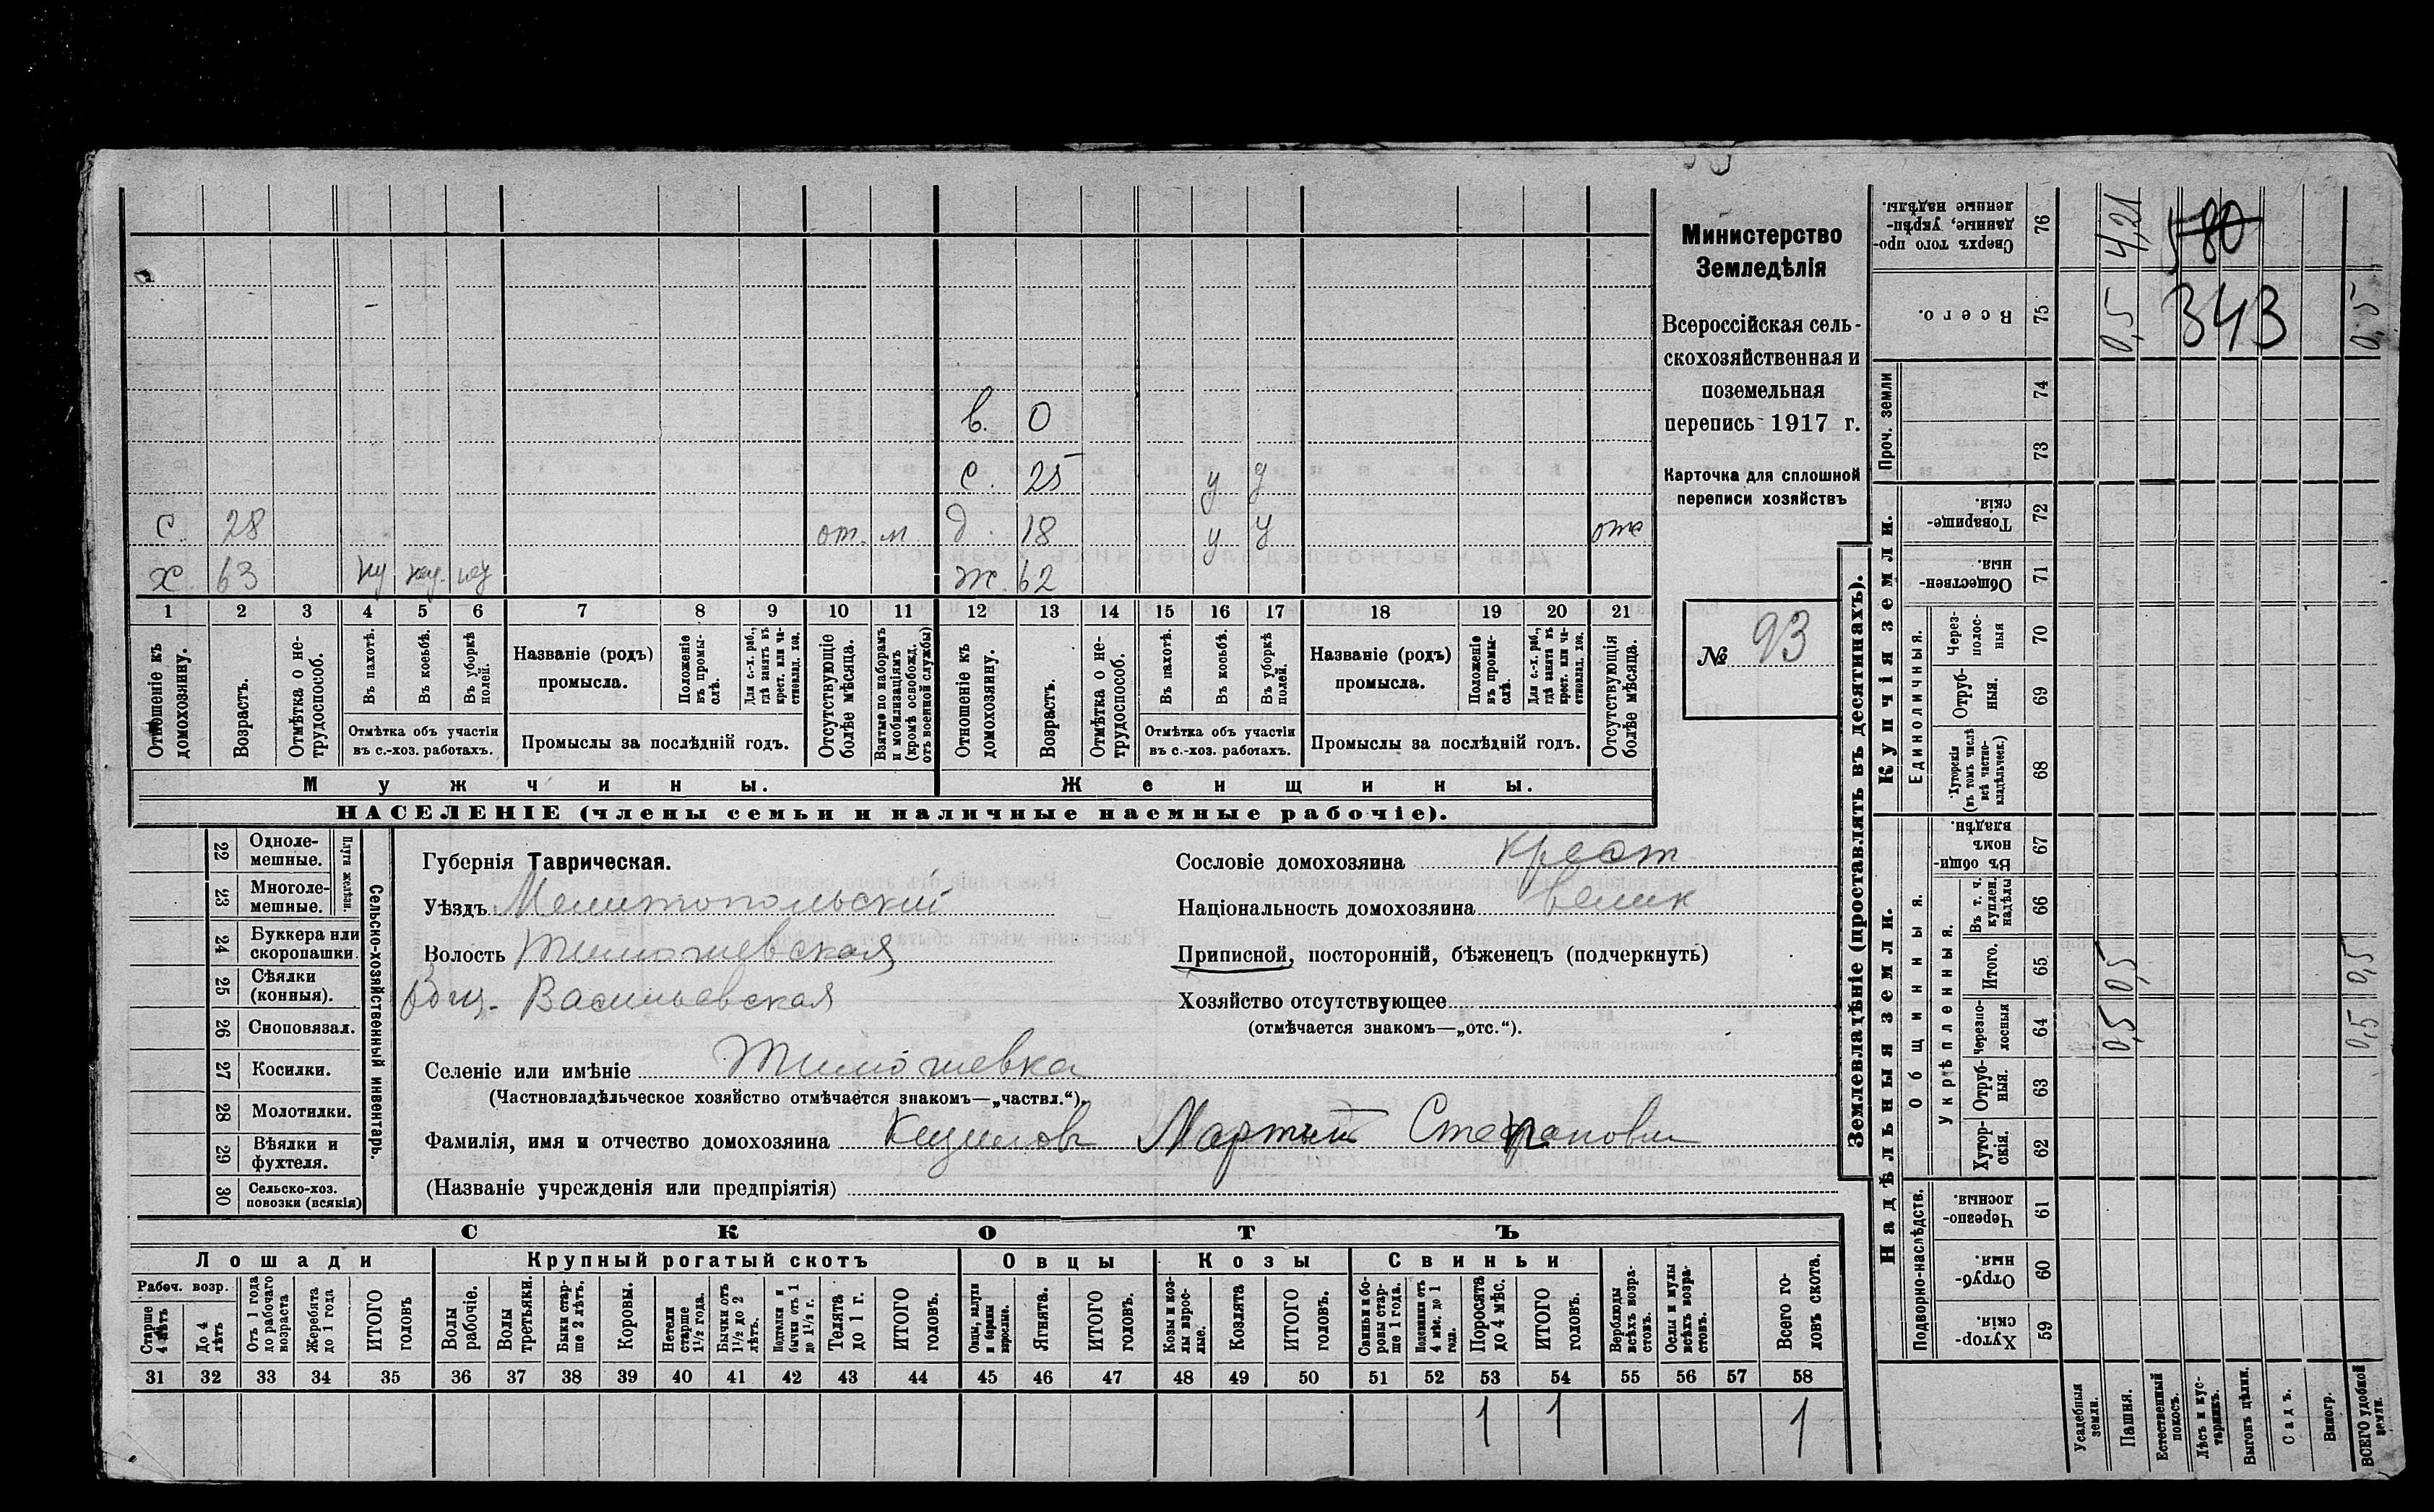 в. О
с. 25 у у
с. 28 от. м д. 18 у у отс
х. 63 ну ну. ну ж. 62
1 2 3 4 5 6 7 8 9 10 11 12 13 14 15 16 17 18 19 20 21
Отношеніе къ домохозяину.
Возрастъ.
Отмѣтка о не-
трудоспособ.
Въ пахотѣ.
Въ косьбѣ.
Въ уборкѣ
полей.
Отмѣтка объ участіи
въ с.-хоз. работахъ.
Названіе (родъ)
промысла.
Положеніе
въ промы-
слѣ.
Для с.-х. раб.,
гдѣ занятъ въ
крест. или ча-
стновлад. хоз.
Промыслы за послѣдній годъ.
Отсутствующіе
болѣе мѣсяца.
Взятые по наборамъ
и мобилизаціямъ
(кромѣ освобожд.
отъ военной службы)
Отношеніе къ
домохозяину.
Возрастъ.
Отмѣтка о не-
трудоспособ.
Въ пахотѣ.
Въ косьбѣ.
Въ уборкѣ
полей.
Отмѣтка объ участіи
въ с.-хоз. работахъ.
Названіе (родъ)
промысла.
Положеніе
въ промы-
слѣ.
Для с.-х. раб.,
гдѣ занята въ
крест. или ча-
стновлад. хоз.
Промыслы за послѣдній годъ.
Отсутствующія
болѣе мѣсяца.
Мужчины. Женщины.
НАСЕЛЕНІЕ (члены семьи и наличные наемные рабочіе).
Министерство
Земледѣлія
Всероссійская сель-
скохозяйственная и
поземельная
перепись 1917 г.
Карточка для сплошной
переписи хозяйствъ
№ 93
22 Однолe-
мешные.
23 Многоле-
мешные.
Плуги желѣзн.
24 Буккера или
скоропашки.
25 Сѣялки
(конныя).
26 Сноповязал.
27 Косилки.
28 Молотилки.
29 Вѣялки и
фухтеля.
30 Сельско-хоз.
повозки (всякія)
Сельско-хозяйственный инвентарь.
Губернія Таврическая.
Уѣздъ Мелитопольскій
Волость Тимошевская
Общ. Васильевская
Селеніе или имѣніе Тимошевка
(Частновладѣльческое хозяйство отмѣчается знакомъ—„частвл.“).
Фамилія, имя и отчество домохозяина Мартын Степанович
(Названіе учрежденія или предпріятія)
Сословіе домохозяина крест
Національность домохозяина велик
Приписной, посторонній, бѣженецъ (подчеркнуть)
Хозяйство отсутствующее
(отмѣчается знакомъ—„отс.“).
СКОТЪ
Лошади Крупный рогатый скотъ Овцы Козы Свиньи
Рабоч. возр.
Старше
4 лѣтъ
До 4
лѣтъ
Отъ 1 года
до рабочаго
возраста
Жеребята
до 1 года
ИТОГО
головъ
Волы
рабочіе.
Волы
третьяки.
Быки стар-
ше 2 лѣтъ.
Коровы.
Нетели
старше
1½ года.
Бычки отъ
1½ до 2
лѣтъ.
Подтелки и
бычки отъ 1
до 1½ г.
Телята
до 1 г.
ИТОГО
головъ.
Овцы, валухи
и бараны
взрослые.
Ягнята.
ИТОГО
головъ.
Козы и коз-
лы взрос-
лые.
Козлята
ИТОГО
головъ.
Свиньи и бо-
ровы стар-
ше 1 года.
Подсвинки отъ
4 мѣс. до 1
года.
Поросята
до 4 мѣс.
ИТОГО
головъ.
Верблюды
всѣхъ возра-
стовъ.
Ослы и мулы
всѣхъ возра-
стовъ.
Всего го-
ловъ скота.
31 32 33 34 35 36 37 38 39 40 41 42 43 44 45 46 47 48 49 50 51 52 53 54 55 56 57 58
1 1 1
Землевладѣніе (проставлять въ десятинахъ).
Надѣльныя земли. Купчія земли. Проч. земли
Подворно-наслѣдств.
Общинныя.
Укрѣпленныя.
Единоличныя.
Хутор-
скія. 59
Отруб-
ныя. 60
Черезпо-
лосныя. 61
Хутор-
скія. 62
Отруб-
ныя. 63
Черезпо-
лосныя 64 0,5 0,5
Итого. 65 0,5 0,5
Въ т. ч.
куплен.
надѣлы 66
Въ общин-
номъ
владѣн. 67
Хуторскія
(въ томъ числѣ
всѣ частно-
владѣльческ.) 68
Отруб-
ныя. 69
Через-
полос-
ныя 70
Обществен-
ныя. 71
Товарище-
скія. 72
73
74
Всего. 75 0,5 343 0,5
Сверхъ того про-
данные, укрѣп-
ленные надѣлы. 76 4,21 580
Усадебныя
земли.
Пашня.
Естественный
покосъ.
Лѣсъ и кус-
тарникъ.
Выгонъ цѣлин.
Садъ.
Виногр.
ВСЕГО удобной
земли.